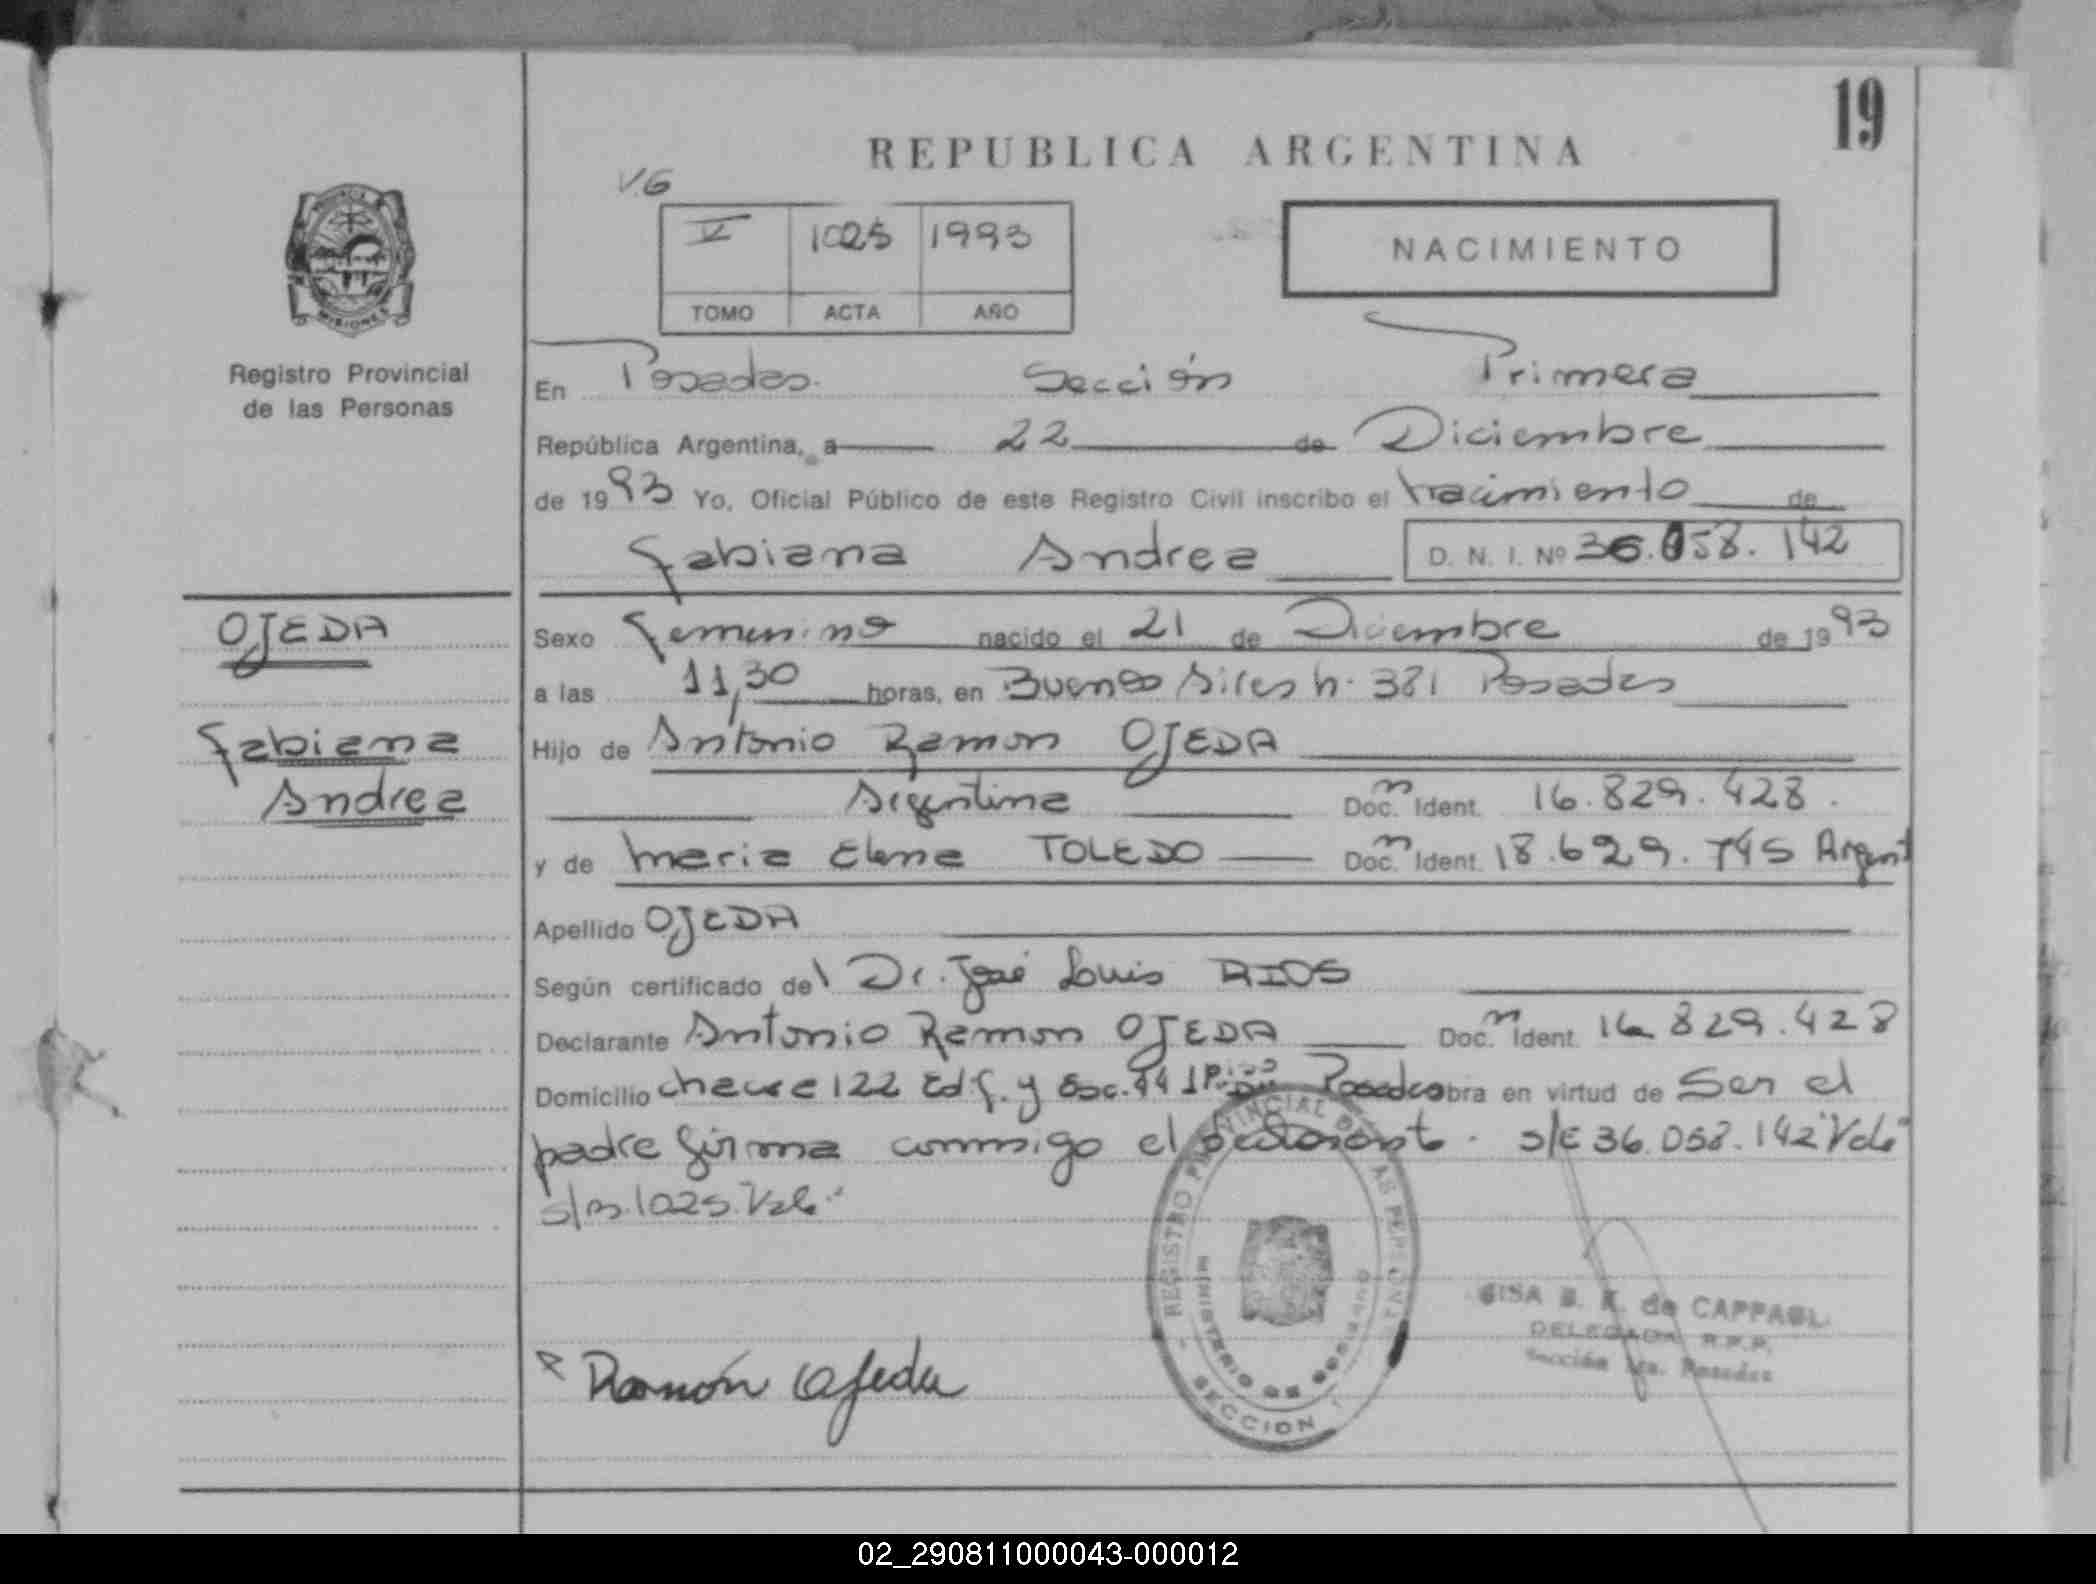 19
REPUBLICA ARGENTINA
V.G
V 1025 1993
TOMO ACTA AÑO
NACIMIENTO
MISIONES
Registro Provincial
de las Personas
En Posadas. Sección Primera
República Argentina, a 22 de Diciembre
de 1993 Yo, Oficial Público de este Registro Civil inscribo el nacimiento de
Fabiana Andrea D. N. I. Nº 36.058.142
OJEDA
Fabiana
Andrea
Sexo Femenino nacido el 21 de Diciembre de 1993
a las 11,30 horas, en Buenos Aires n. 381 Posadas
Hijo de Antonio Ramon OJEDA
Argentina Doc. n Ident. 16.829.428.
y de Maria Elena TOLEDO Doc. n Ident. 18.629.745 Argent
Apellido OJEDA
Según certificado del Dr. José Luis RIOS
Declarante Antonio Ramon OJEDA Doc. n Ident. 16 829.428
Domicilio 122 Edf. y Esc. 44 1 Piso Posadas obra en virtud de Ser el
padre firma conmigo el declarante. s/E 36.058.142 "Vale"
s/n. 1025. Vale."
REGISTRO PROVINCIAL DE LAS PERSONAS
MINISTERIO DE GOBIERNO
SECCION
Ramón Ojeda
de CAPPAGL.
DELEGADA R.P.P.
Sección 1ra. Posadas
02_290811000043-000012